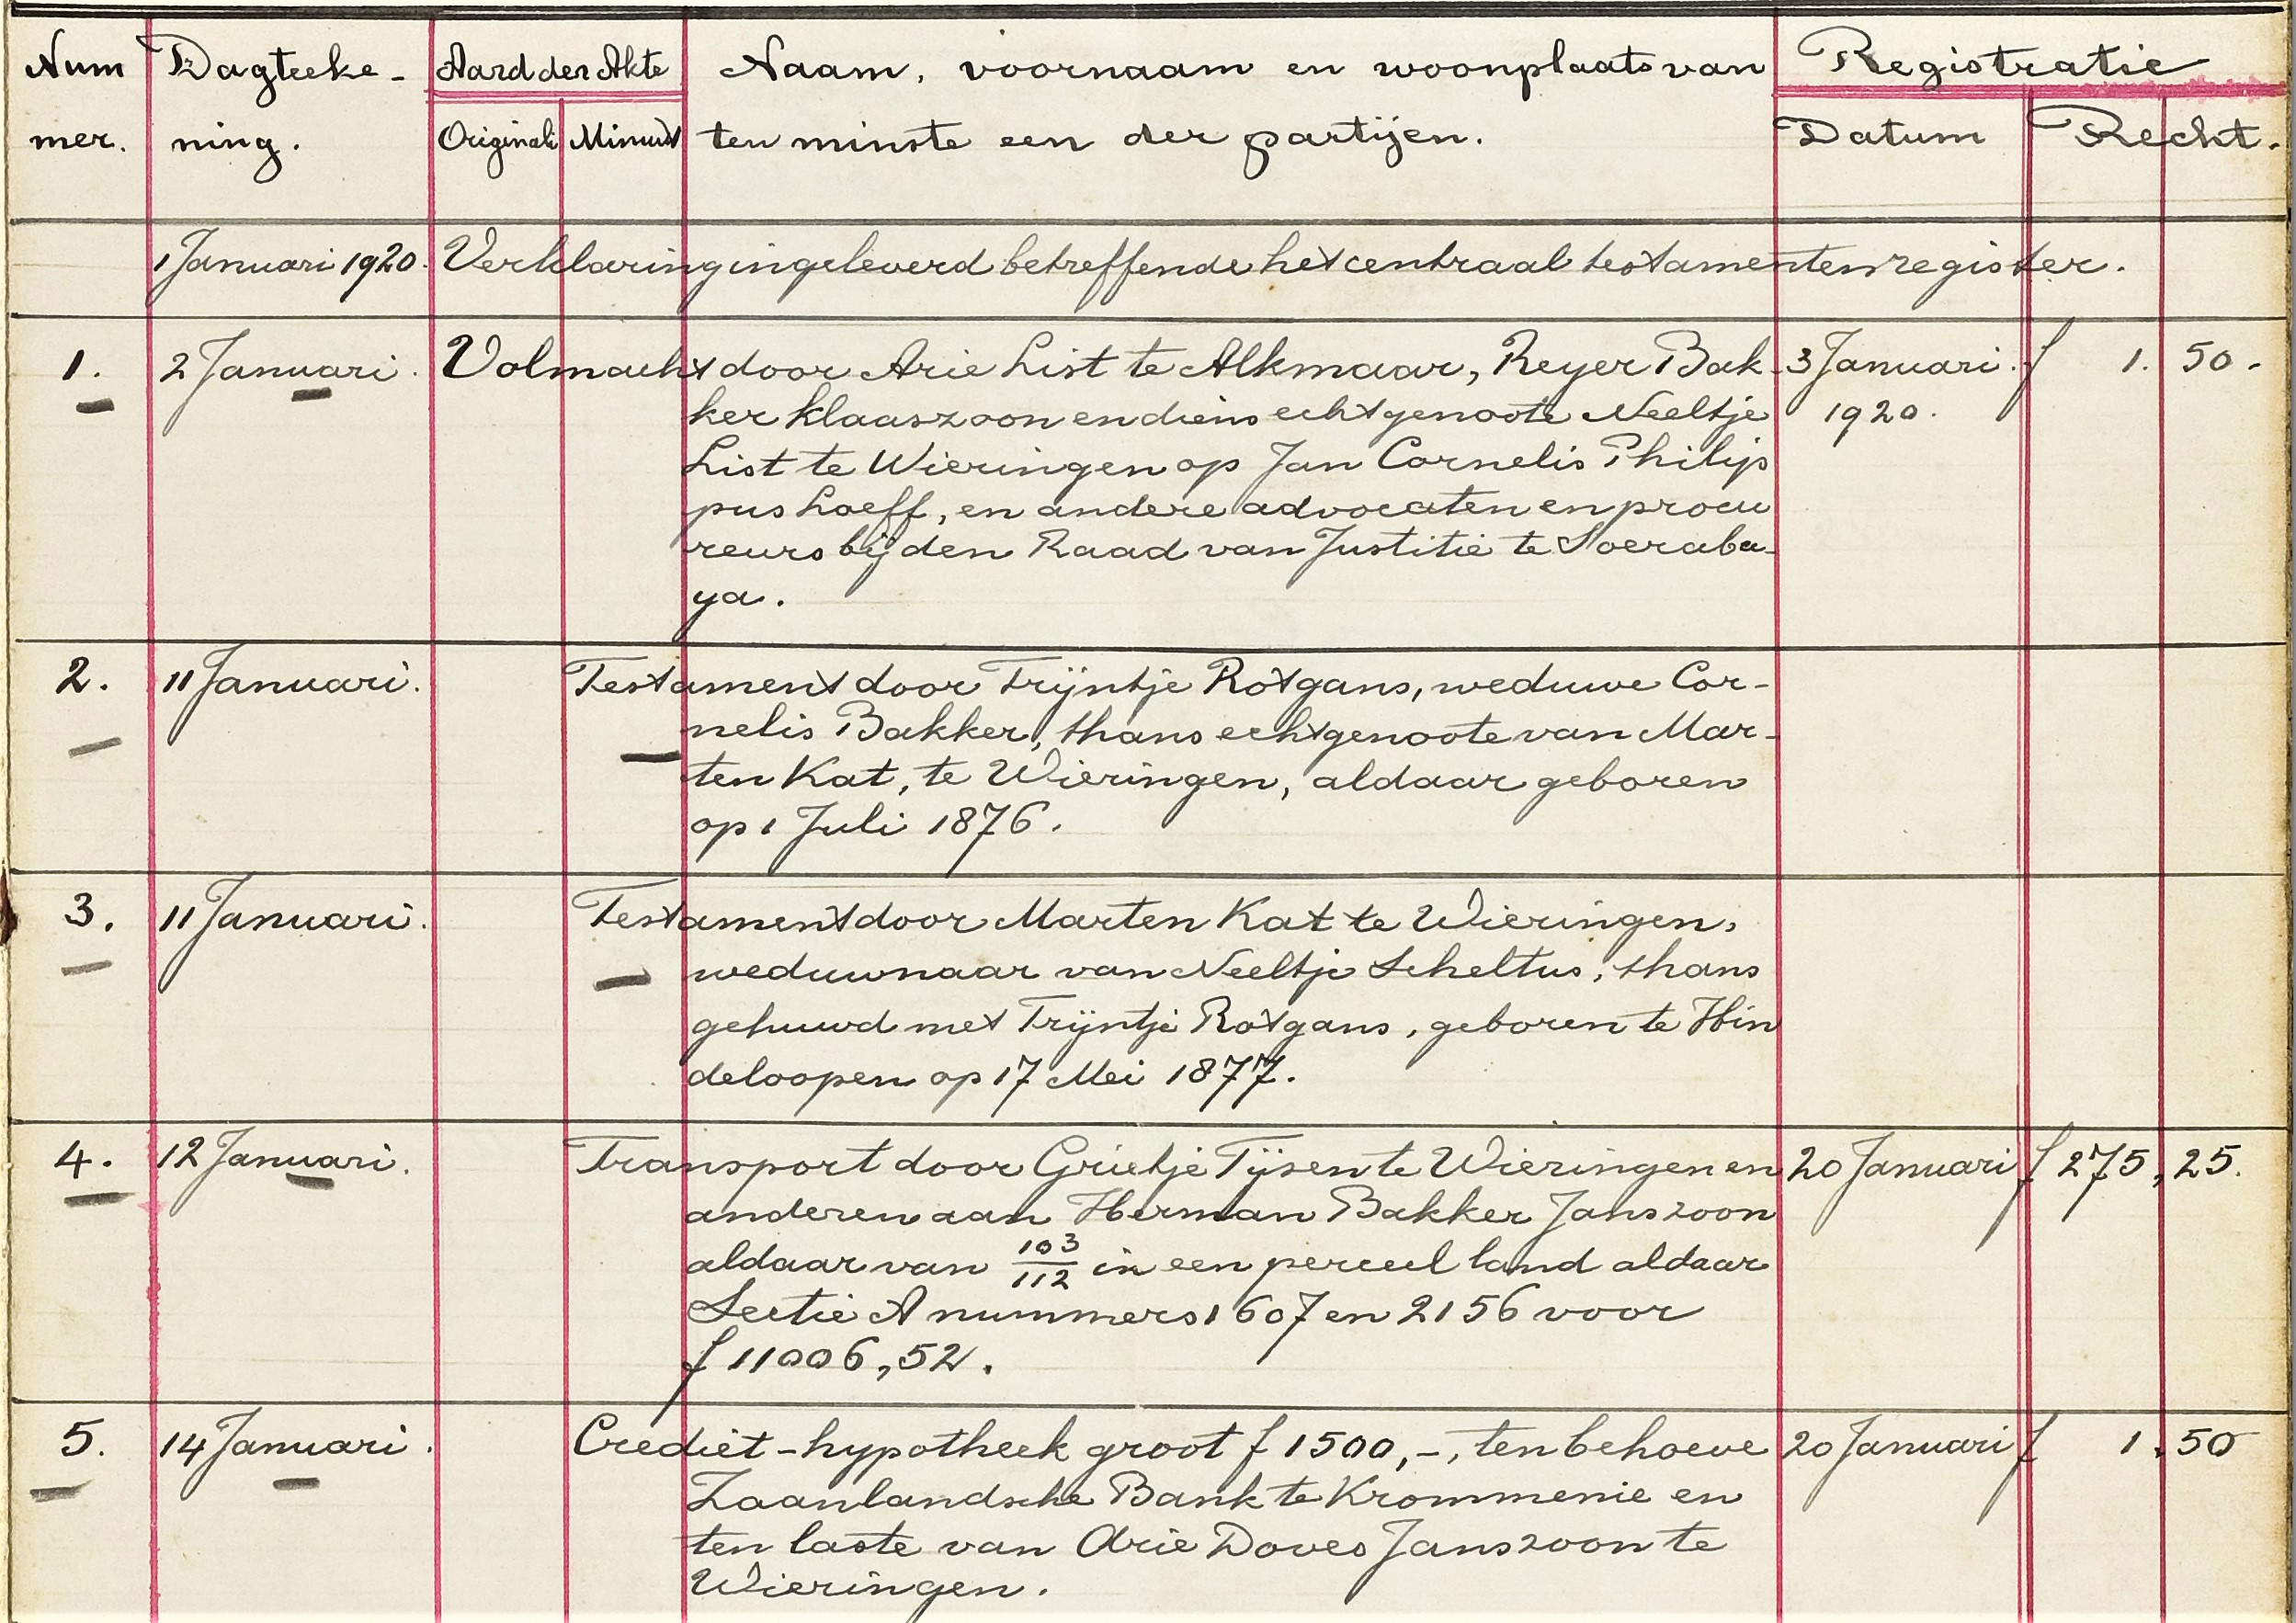 Num Dagteeke- Aard der Akte Naam, voornaam en woonplaats van Registratie
mer. ning. Originali Minuut ten minste een der partijen. Datum Recht.
1 Januari 1920. Verklaring ingeleverd betreffende het centraal testamentenregister.
1. 2 Januari. Volmacht door Arie List te Alkmaar, Reyer Bak- 3 Januari. f 1. 50.
ker Klaaszoon en diens echtgenoote Neeltje 1920.
List te Wieringen op Jan Cornelis Philip
pus Loeff, en andere advocaten en procu
reurs bij den Raad van Justitie te Soeraba-
ya.
2. 11 Januari. Testament door Trijntje Rotgans, weduwe Cor-
nelis Bakker, thans echtgenoote van Mar-
ten Kat, te Wieringen, aldaar geboren
op 1 Juli 1876.
3. 11 Januari. Testament door Marten Kat te Wieringen,
weduwnaar van Neeltje Scheltus, thans
gehuwd met Trijntje Rotgans, geboren te Hin
deloopen op 17 Mei 1877.
4. 12 Januari. Transport door Grietje Tijsen te Wieringen en 20 Januari f 275,25.
anderen aan Herman Bakker Janszoon
aldaar van 103/112 in een perceel land aldaar
Sectie A nummers 1607 en 2156 voor
f 11006,52.
5. 14 Januari. Crediet-hypotheek groot f 1500,-, ten behoeve 20 Januari f 1.50
Zaanlandsche Bank te Krommenie en
ten laste van Arie Doves Janszoon te
Wieringen.